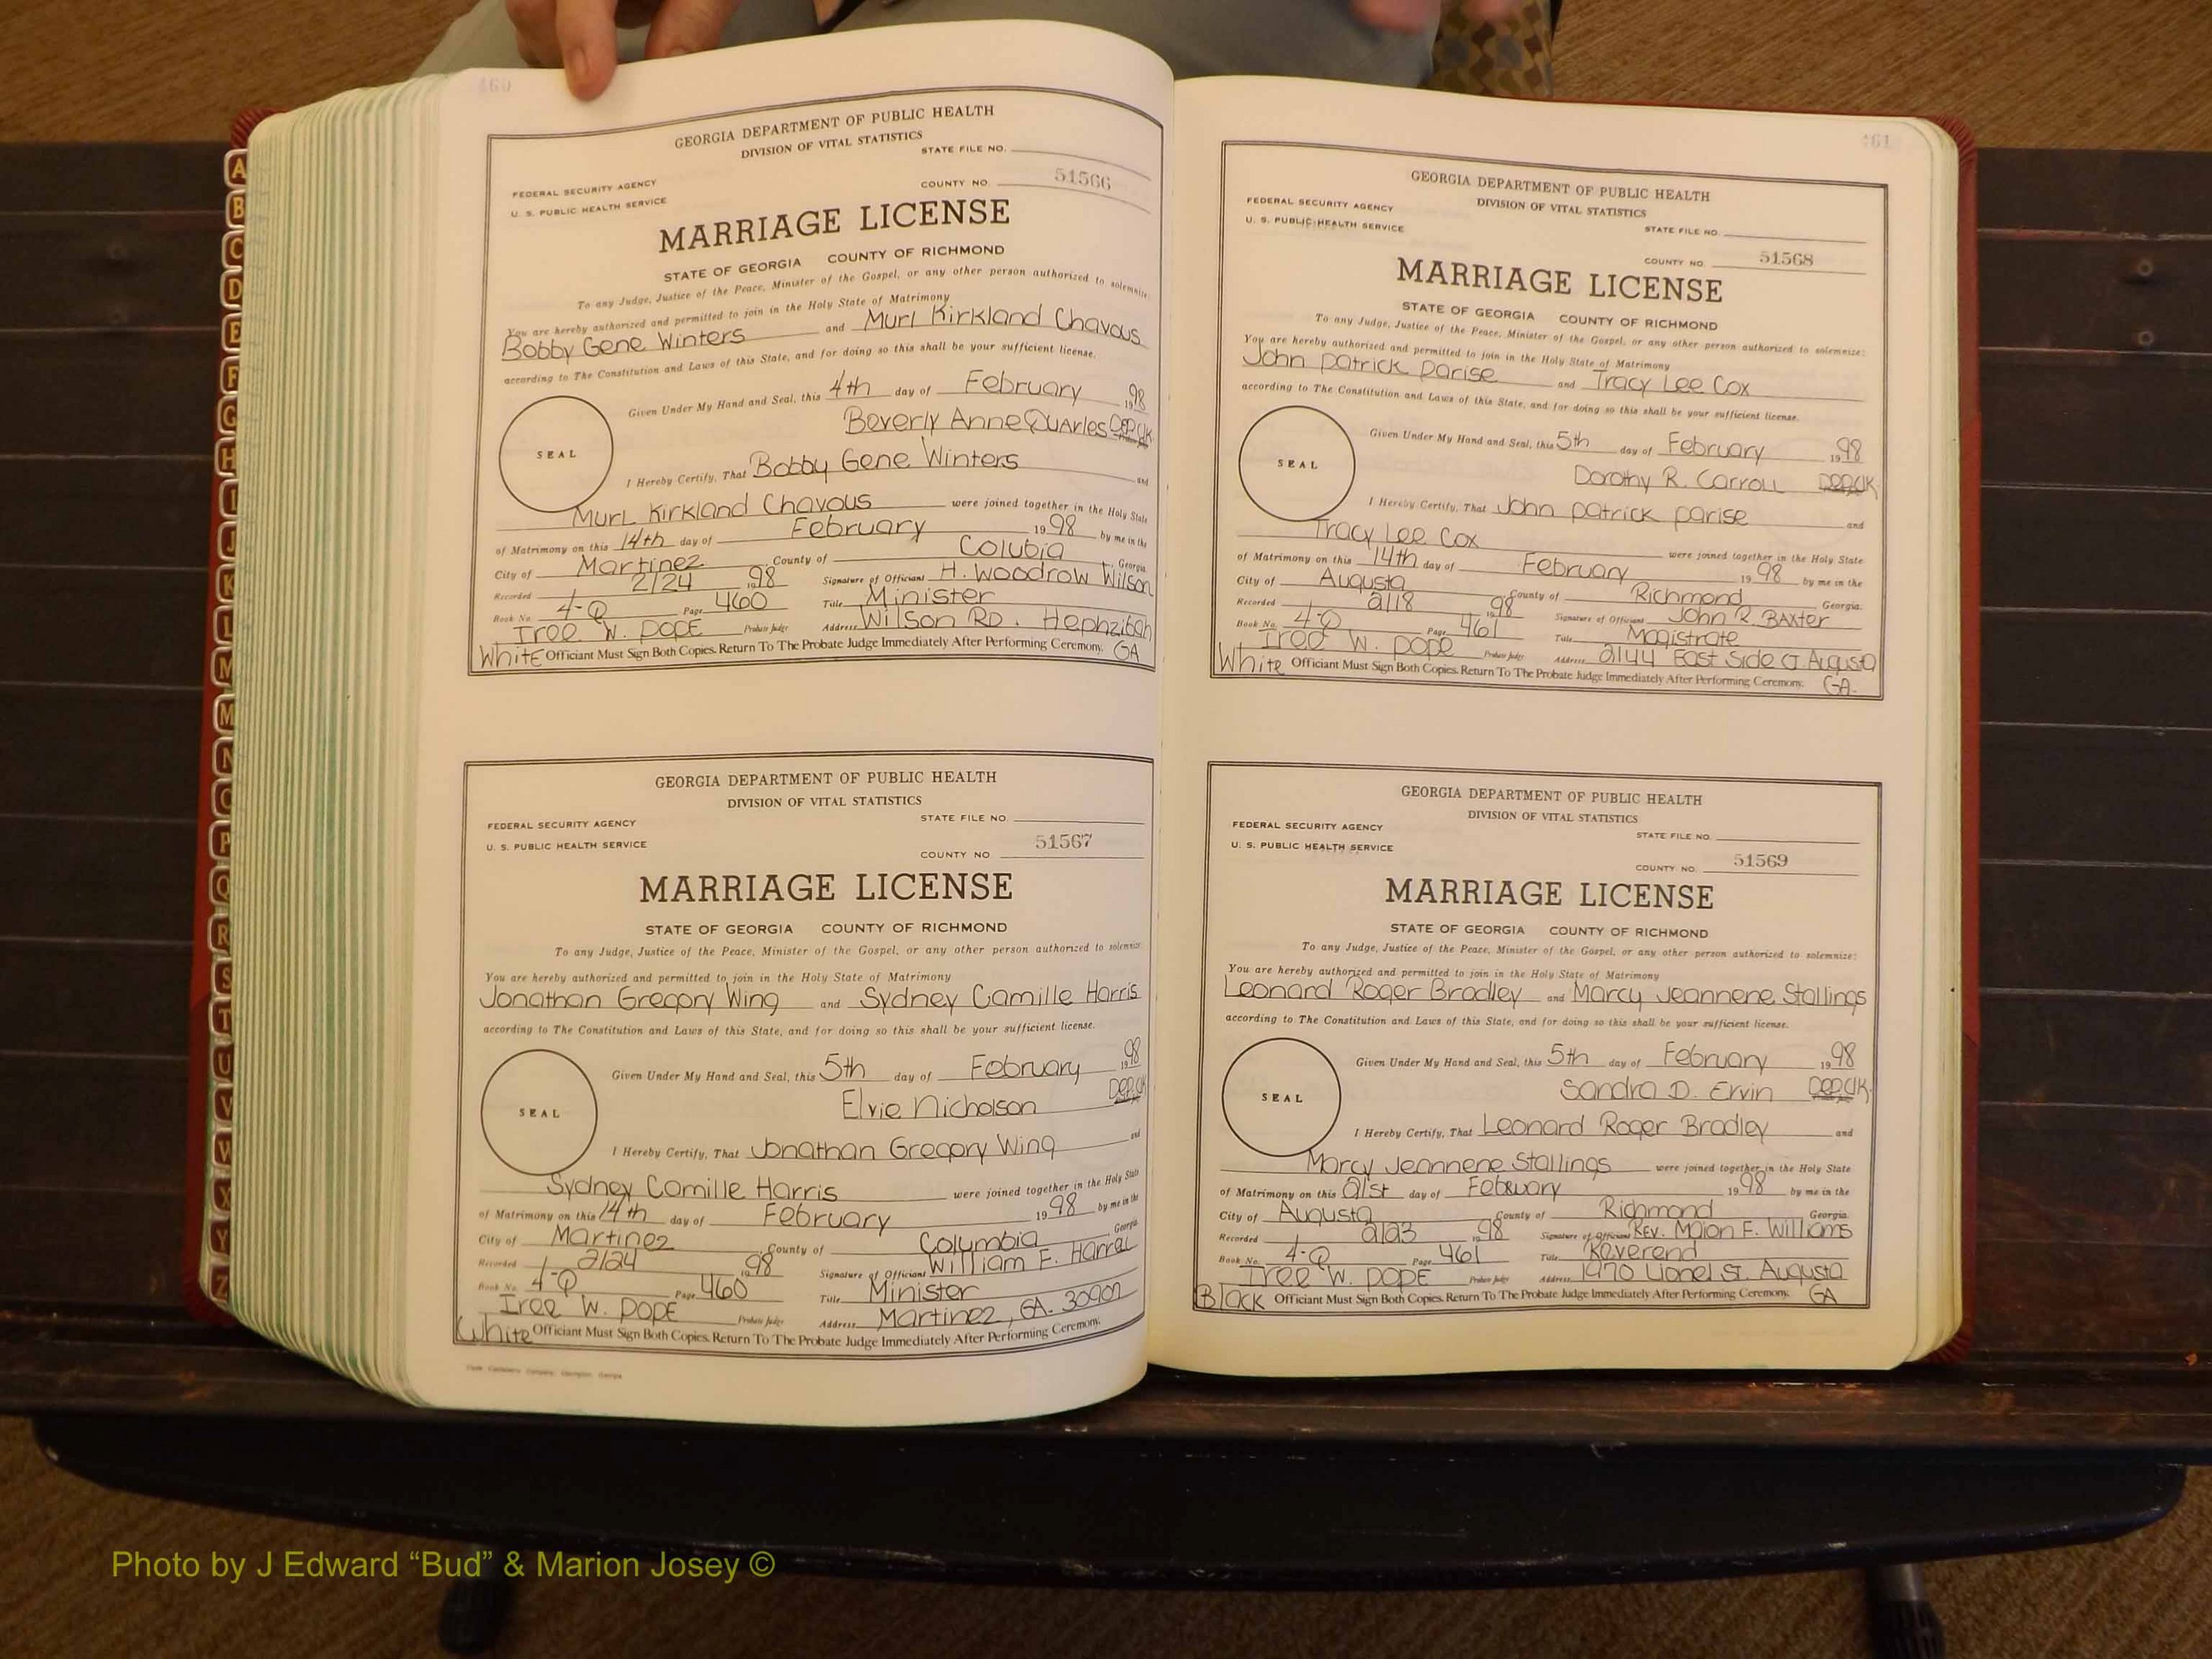 460
GEORGIA DEPARTMENT OF PUBLIC HEALTH
DIVISION OF VITAL STATISTICS
STATE FILE NO.
FEDERAL SECURITY AGENCY
COUNTY NO. 51566
U. S. PUBLIC HEALTH SERVICE
MARRIAGE LICENSE
STATE OF GEORGIA COUNTY OF RICHMOND
To any Judge, Justice of the Peace, Minister of the Gospel, or any other person authorized to solemnize:
You are hereby authorized and permitted to join in the Holy State of Matrimony
Bobby Gene Winters and Murl Kirkland Chavous
according to The Constitution and Laws of this State, and for doing so this shall be your sufficient license.
Given Under My Hand and Seal, this 4th day of February 1998
Beverly Anne Quarles Dep. Clk
SEAL
I Hereby Certify, That Bobby Gene Winters and
Murl Kirkland Chavous were joined together in the Holy State
of Matrimony on this 14th day of February 1998 by me in the
City of Martinez County of Colubia Georgia.
Recorded 2/24 1998 Signature of Officiant H. Woodrow Wilson
Book No. 4-Q Page 460 Title Minister
Iree W. Pope Probate Judge Address Wilson RD. Hephzibah
White Officiant Must Sign Both Copies. Return To The Probate Judge Immediately After Performing Ceremony. GA
GEORGIA DEPARTMENT OF PUBLIC HEALTH
DIVISION OF VITAL STATISTICS
STATE FILE NO.
FEDERAL SECURITY AGENCY
U. S. PUBLIC HEALTH SERVICE
COUNTY NO. 51567
MARRIAGE LICENSE
STATE OF GEORGIA COUNTY OF RICHMOND
To any Judge, Justice of the Peace, Minister of the Gospel, or any other person authorized to solemnize:
You are hereby authorized and permitted to join in the Holy State of Matrimony
Jonathan Gregory Wing and Sydney Camille Harris
according to The Constitution and Laws of this State, and for doing so this shall be your sufficient license.
Given Under My Hand and Seal, this 5th day of February 1998
Elvie Nicholson Dep. Clk
SEAL
I Hereby Certify, That Jonathan Gregory Wing and
Sydney Camille Harris were joined together in the Holy State
of Matrimony on this 14th day of February 1998 by me in the
City of Martinez County of Columbia Georgia.
Recorded 2/24 1998 Signature of Officiant William F. Harrel
Book No. 4-Q Page 460 Title Minister
Iree W. Pope Probate Judge Address Martinez, GA. 30907
White Officiant Must Sign Both Copies. Return To The Probate Judge Immediately After Performing Ceremony.
461
GEORGIA DEPARTMENT OF PUBLIC HEALTH
DIVISION OF VITAL STATISTICS
FEDERAL SECURITY AGENCY
U. S. PUBLIC HEALTH SERVICE
STATE FILE NO.
COUNTY NO. 51568
MARRIAGE LICENSE
STATE OF GEORGIA COUNTY OF RICHMOND
To any Judge, Justice of the Peace, Minister of the Gospel, or any other person authorized to solemnize:
You are hereby authorized and permitted to join in the Holy State of Matrimony
John Patrick Parise and Tracy Lee Cox
according to The Constitution and Laws of this State, and for doing so this shall be your sufficient license.
Given Under My Hand and Seal, this 5th day of February 1998
Dorothy R. Carroll Dep. Clk
SEAL
I Hereby Certify, That John Patrick Parise and
Tracy Lee Cox were joined together in the Holy State
of Matrimony on this 14th day of February 1998 by me in the
City of Augusta County of Richmond Georgia.
Recorded 2/18 1998 Signature of Officiant John R. Baxter
Book No. 4-Q Page 461 Title Magistrate
Iree W. Pope Probate Judge Address 2144 East Side CT Augusta
White Officiant Must Sign Both Copies. Return To The Probate Judge Immediately After Performing Ceremony. GA.
GEORGIA DEPARTMENT OF PUBLIC HEALTH
DIVISION OF VITAL STATISTICS
FEDERAL SECURITY AGENCY
STATE FILE NO.
U. S. PUBLIC HEALTH SERVICE
COUNTY NO. 51569
MARRIAGE LICENSE
STATE OF GEORGIA COUNTY OF RICHMOND
To any Judge, Justice of the Peace, Minister of the Gospel, or any other person authorized to solemnize:
You are hereby authorized and permitted to join in the Holy State of Matrimony
Leonard Roger Bradley and Marcy Jeannene Stallings
according to The Constitution and Laws of this State, and for doing so this shall be your sufficient license.
Given Under My Hand and Seal, this 5th day of February 1998
Sandra D. Ervin Dep. Clk.
SEAL
I Hereby Certify, That Leonard Roger Bradley and
Marcy Jeannene Stallings were joined together in the Holy State
of Matrimony on this 21st day of February 1998 by me in the
City of Augusta County of Richmond Georgia.
Recorded 2/23 1998 Signature of Officiant Rev. Maion F. Williams
Book No. 4-Q Page 461 Title Reverend
Iree W. Pope Probate Judge Address 1970 Lionel St. Augusta
Black Officiant Must Sign Both Copies. Return To The Probate Judge Immediately After Performing Ceremony. GA
A
B
C
D
E
F
G
H
I
J
K
L
M
M
N
O
P
Q
R
S
T
U
V
W
X
Y
Z
Photo by J Edward “Bud” & Marion Josey ©